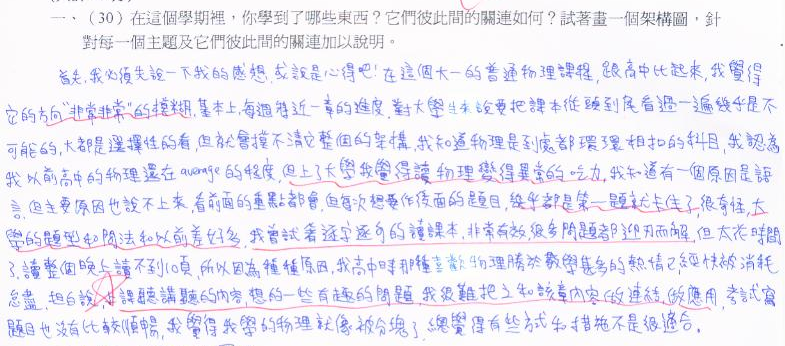 一、（30）在這個學期裡，你學到了哪些東西？它們彼此間的關連如何？試著畫一個架構圖，針
對每一個主題及它們彼此間的關連加以說明。
首先，我必須先說一下我的感想，或說是心得吧！在這個大一的普通物理課程，跟高中比起來，我覺得
它的方向"非常非常"的模糊，基本上，每週將近一章的進度，對大學生來說要把課本從頭到尾看過一遍幾乎是不
可能的，大都是選擇性的看，但就會摸不清它整個的架構，我知道物理是到處都環環相扣的科目，我認為
我以前高中的物理還在average的程度，但上了大學我覺得讀物理變得異常的吃力，我知道有一個原因是語
言，但主要原因也說不上來，看前面的重點都會，但每次想要作後面的題目，幾乎都是第一題就卡住了，很奇怪，大
學的題型和問法和以前差好多，我曾試著逐字逐句的讀課本，非常有效，很多問題都迎刃而解，但太花時間
了，讀整個晚上讀不到10頁，所以因為種種原因，我高中時那種喜歡物理勝於數學幾多的熱情已經快被消耗
怠盡，坦白說，課聽講聽的內容，想的一些有趣的問題，我很難把之和該章內容做連結，做應用，考試寫
題目也沒有比較順暢，我覺得我學的物理就像被分塊了，總覺得有些方式和措施不是很適合。